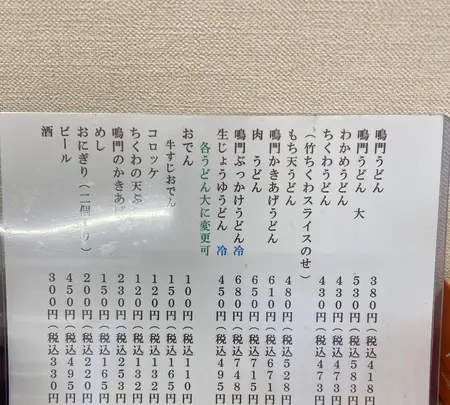 鳴門うどん 380円(税込418円
鳴門うどん 大 530円(税込583円
わかめうどん 430円(税込473円
ちくわうどん 430円(税込473円
(竹ちくわスライスのせ)
もち天うどん 480円(税込528円
鳴門かきあげうどん 610円(税込671円
肉 うどん 650円(税込715円
鳴門ぶっかけうどん 冷 680円(税込748円
生じょうゆうどん 冷 450円(税込495円
各うどん大に変更可
おでん 100円(税込110
牛すじおでん 150円(税込165
コロッケ 120円(税込132
ちくわの天ぷ 120円(税込132
鳴門のかきあげ 230円(税込253
めし 150円(税込165
おにぎり(二個 り) 200円(税込220
ビール 450円(税込495
酒 300円(税込330